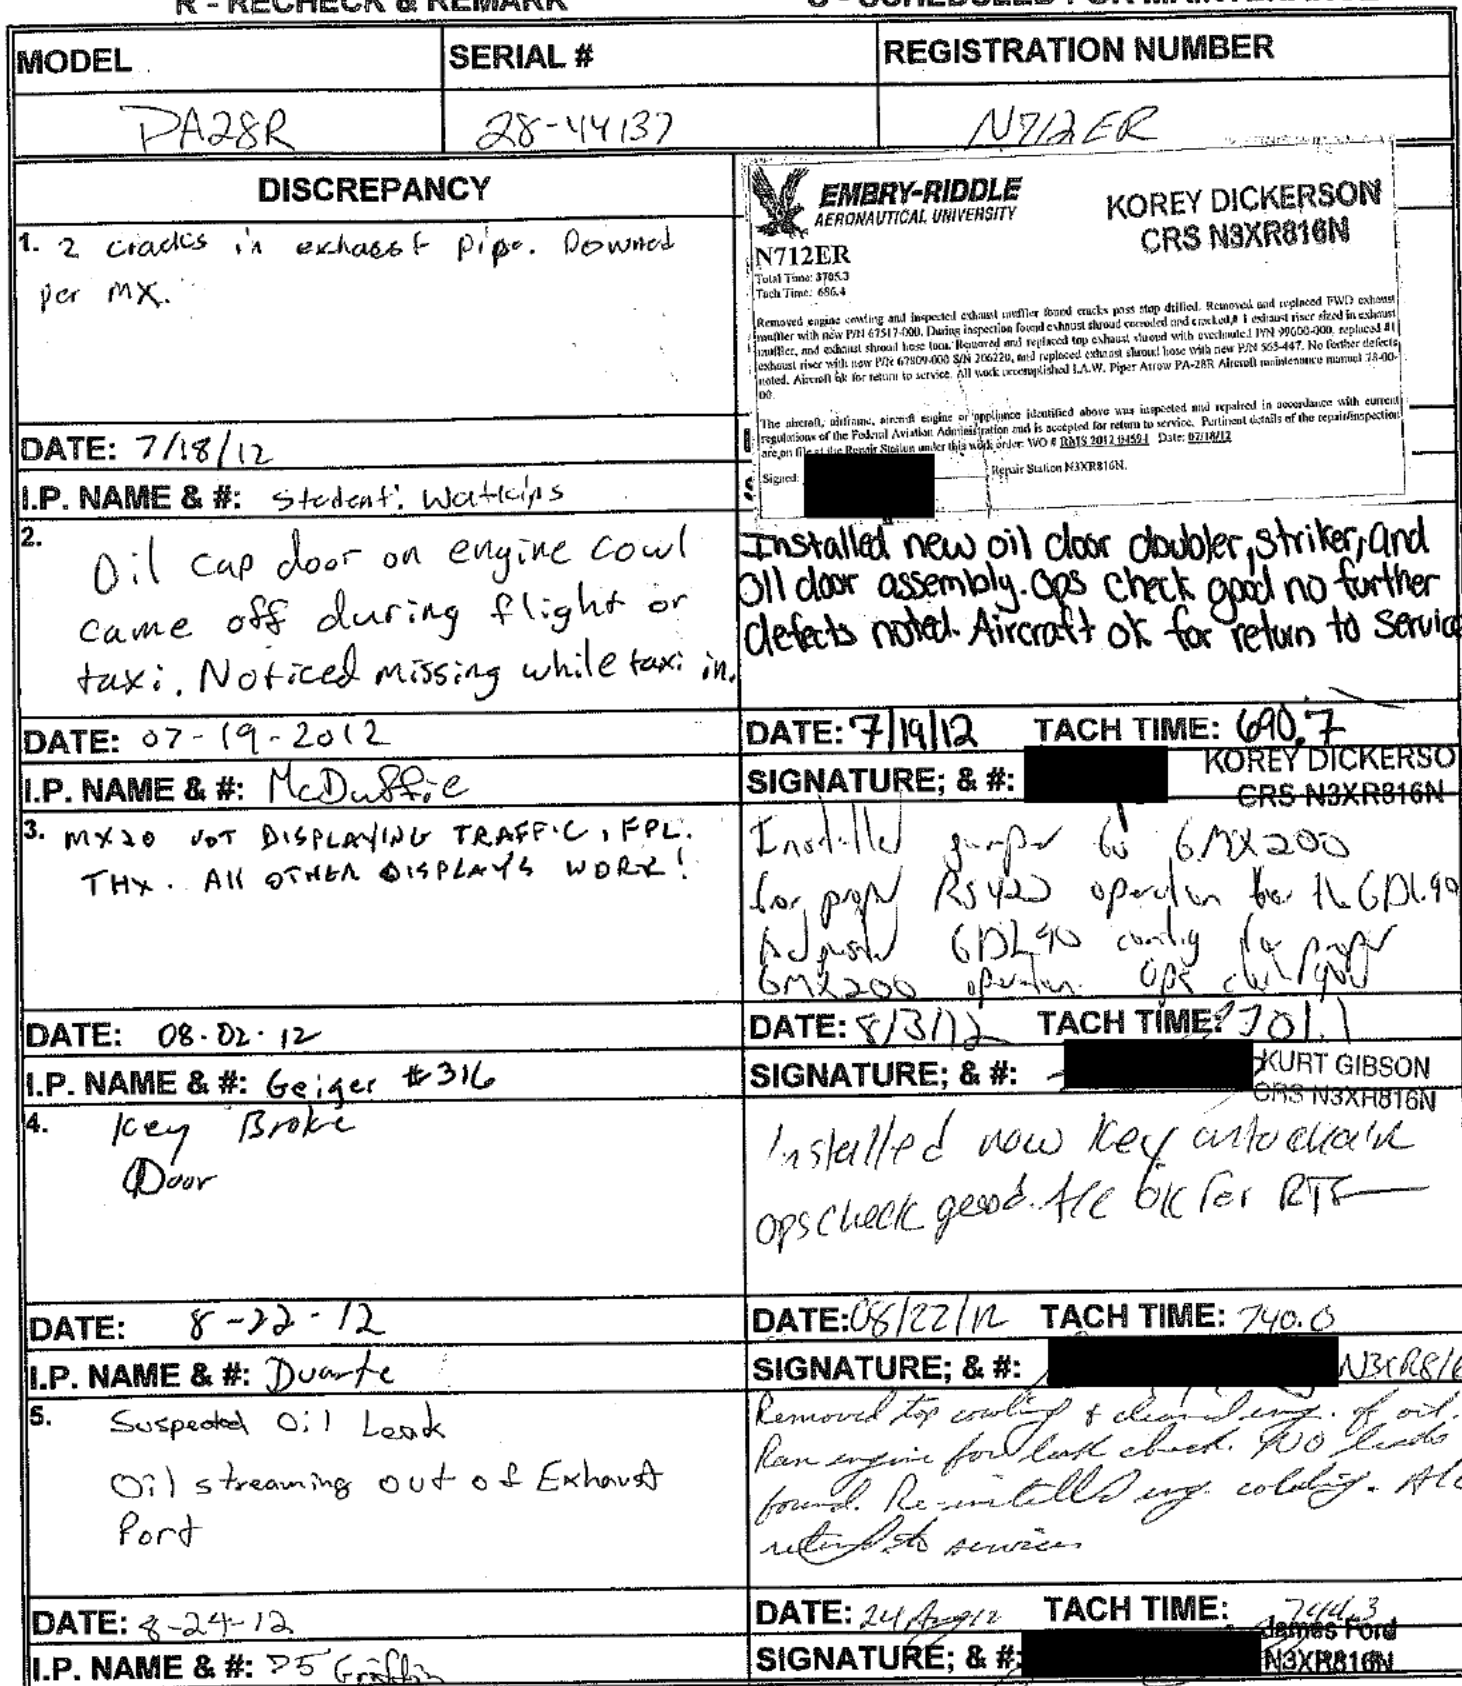 R - RECHECK & REMARK
MODEL
SERIAL #
REGISTRATION NUMBER
PA28R
28-44137
N712ER
DISCREPANCY
EMBRY-RIDDLE
AERONAUTICAL UNIVERSITY
KOREY DICKERSON
CRS N3XR816N
N712ER
Total Time: 3705.3
Tach Time: 686.4
Removed engine cowling and inspected exhaust muffler found cracks past stop drilled. Removed and replaced FWD exhaust
muffler with new P/N 67517-000. During inspection found exhaust shroud corroded and cracked,# 1 exhaust riser sized in exhaust
muffler, and exhaust shroud hose torn. Removed and replaced top exhaust shroud with overhauled P/N 99600-000, replaced #1
exhaust riser with new P/N 67809-000 S/N 206220, and replaced exhaust shroud hose with new P/N 565-447. No further defects
noted. Aircraft ok for return to service. All work accomplished I.A.W. Piper Arrow PA-28R Aircraft maintenance manual 78-00-
00.
The aircraft, airframe, aircraft engine or appliance identified above was inspected and repaired in accordance with current
regulations of the Federal Aviation Administration and is accepted for return to service. Pertinent details of the repair/inspection
are on file at the Repair Station under this work order: WO # Date: 07/18/12
Signed:
Repair Station N3XR816N.
1. 2 cracks in exhaust pipe. Downed
per MX.
DATE: 7/18/12
I.P. NAME & #: Student: Watkins
2.
Oil cap door on engine cowl
came off during flight or
taxi. Noticed missing while taxi in.
Installed new oil door doubler, striker, and
oil door assembly. Ops check good no further
defects noted. Aircraft ok for return to service
DATE: 07-19-2012
DATE: 7/19/12 TACH TIME: 690.7
I.P. NAME & #: McDuffie
SIGNATURE; & #:
KOREY DICKERSO
CRS N3XR816N
3. MX20 NOT DISPLAYING TRAFFIC, FPL.
THX. All OTHER DISPLAYS WORK!
Installed jumper to GMX200
for proper RS422 operation the GDL90
Adjusted GDL90 config for proper
GMX200 operation. Ops check good
DATE: 08-02-12
DATE: 8/3/12 TACH TIME: 701.1
I.P. NAME & #: Geiger #316
SIGNATURE; & #:
KURT GIBSON
CRS N3XR816N
4. Key Broke
Door
Installed new key onto chain
ops check good. A/C OK for RTS
DATE: 8-22-12
DATE: 08/22/12 TACH TIME: 740.0
I.P. NAME & #: Duarte
SIGNATURE; & #: N3XR816
5. Suspected Oil Leak
Oil streaming out of Exhaust
Port
Removed top cowling & cleaned eng. of oil.
Ran engine for leak check. NO leaks
found. Re-installed eng. A/C
return to service
DATE: 8-24-12
DATE: 24 Aug 12 TACH TIME: 744.3
James Ford
I.P. NAME & #: Griffin
SIGNATURE; & #:
N3XR816N